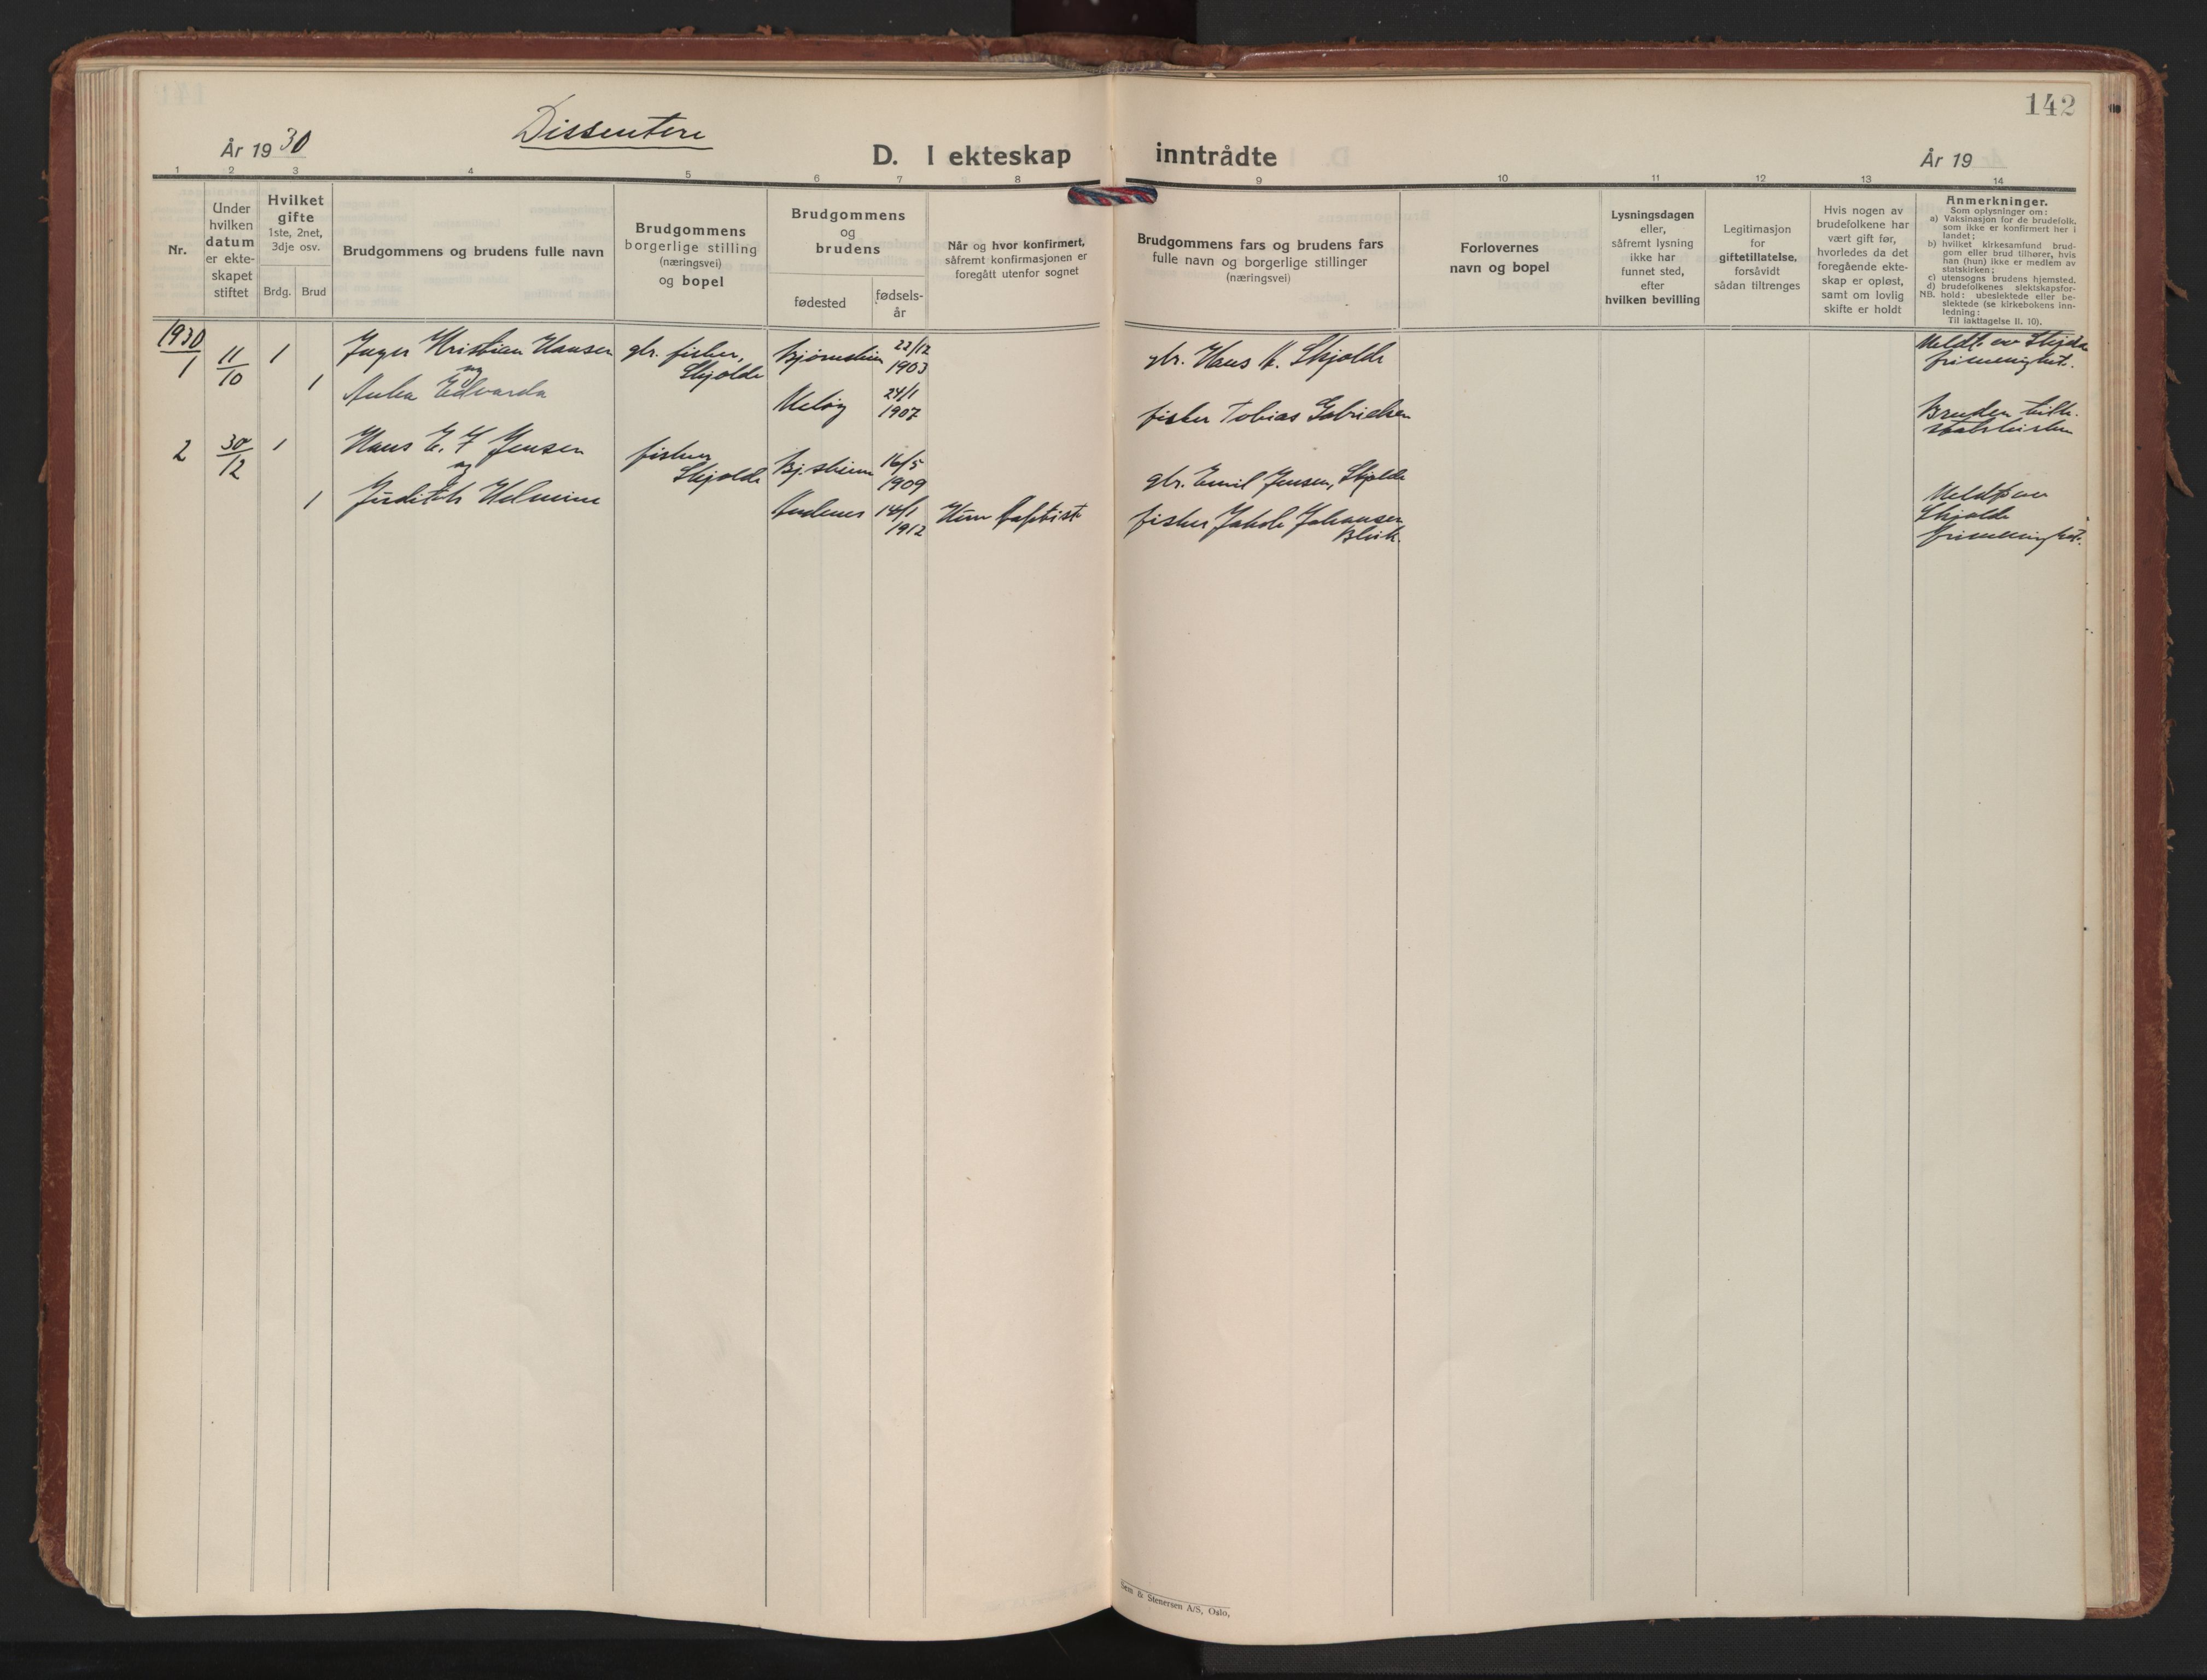 142
År 1930
Dissentere
D. I ekteskap inntrådte
År 19
1 2 3 4 5 6 7 8 9 10 11 12 13 14
Nr.
Under
hvilken
datum
er ekte-
skapet
stiftet
Hvilket
gifte
1ste, 2net,
3dje osv.
Brdg. Brud
Brudgommens og brudens fulle navn
Brudgommens
borgerlige stilling
(næringsvei)
og bopel
Brudgommens
og
brudens
fødested
fødsels-
år
Når og hvor konfirmert,
såfremt konfirmasjonen er
foregått utenfor sognet
Brudgommens fars og brudens fars
fulle navn og borgerlige stillinger
(næringsvei)
Forlovernes
navn og bopel
Lysningsdagen
eller,
såfremt lysning
ikke har
funnet sted,
efter
hvilken bevilling
Legitimasjon
for
giftetillatelse,
forsåvidt
sådan tiltrenges
Hvis nogen av
brudefolkene har
vært gift før,
hvorledes da det
foregående ekte-
skap er opløst,
samt om lovlig
skifte er holdt
Anmerkninger.
Som oplysninger om:
a) Vaksinasjon for de brudefolk,
som ikke er konfirmert her i
landet;
b) hvilket kirkesamfund brud-
gom eller brud tilhører, hvis
han (hun) ikke er medlem av
statskirken;
c) utensogns brudens hjemsted.
d) brudefolkenes slektskapsfor-
NB. hold: ubeslektede eller be-
slektede (se kirkebokens inn-
ledning:
Til iakttagelse II. 10).
1930
1 11/10 1 Inger Kristian Hansen gbr. fisker, Skjolde 22/12 1903 gbr. Hans K. Skjolde
Meldt. av Skjolde
frimenighet.
og
1 Edvarda Meløy 24/1 1907 fisker Tobias Gabrielsen
Bruden tilh.
statskirken
2 30/12 1 Hans E. F Jensen fisker Skjolde Bj.skinn 16/5 1909 gbr. Emil Jensen, Skjolde
og
1 Judith Helmine Andenes 14/1 1912 fisker Jakob Johansen
Bleik.
Meldt av
Skjolde
frimenighet.
Sem & Stenersen A/S, Oslo,